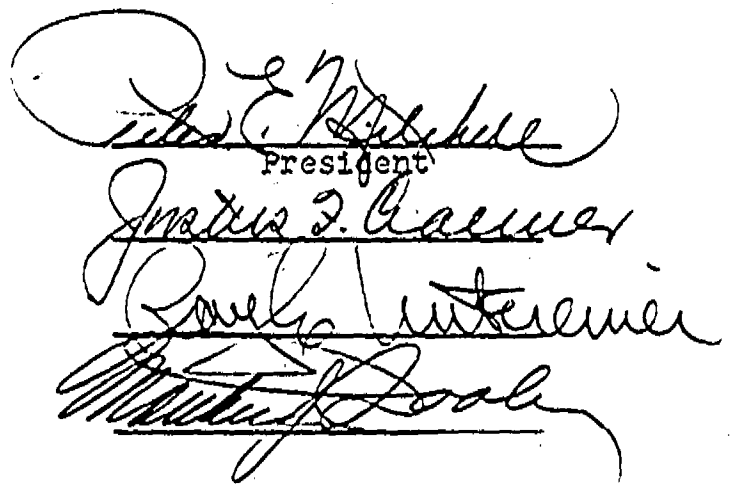 Peter E. Mitchell
President
Justus F. Craemer
Untereiner
Matthew J. Dooley